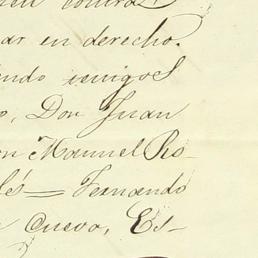 contra
ar en derecho.
endo
o, Don Juan
on Manuel Ro-
lés = Fernando
Cueva, Es-